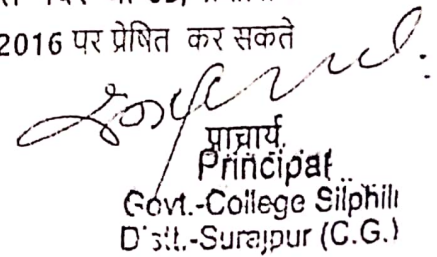 2016 पर प्रेषित कर सकते
प्राचार्य
Principal
Govt.-College Silphili
Distt.-Surajpur (C.G.)